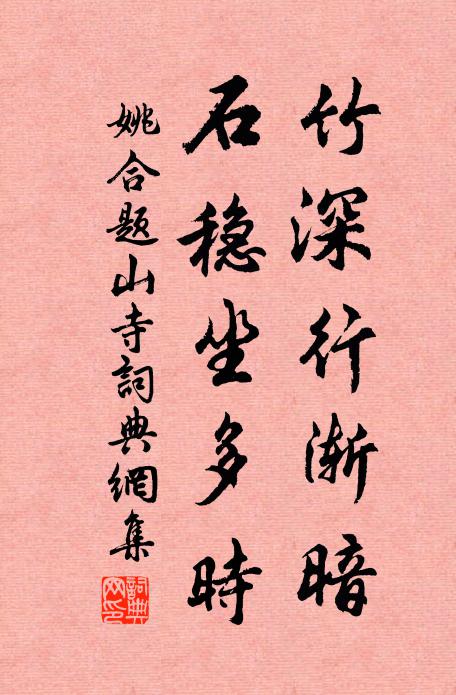 竹深行渐暗
石稳坐多時
姚合题山寺詞典網集
詞典网印